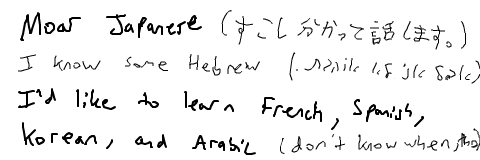 Moar Japanese (すこし分かって話します。)
I know some Hebrew (.
I'd like to learn French, Spanish,
Korean, and Arabic (don't know when, tho)